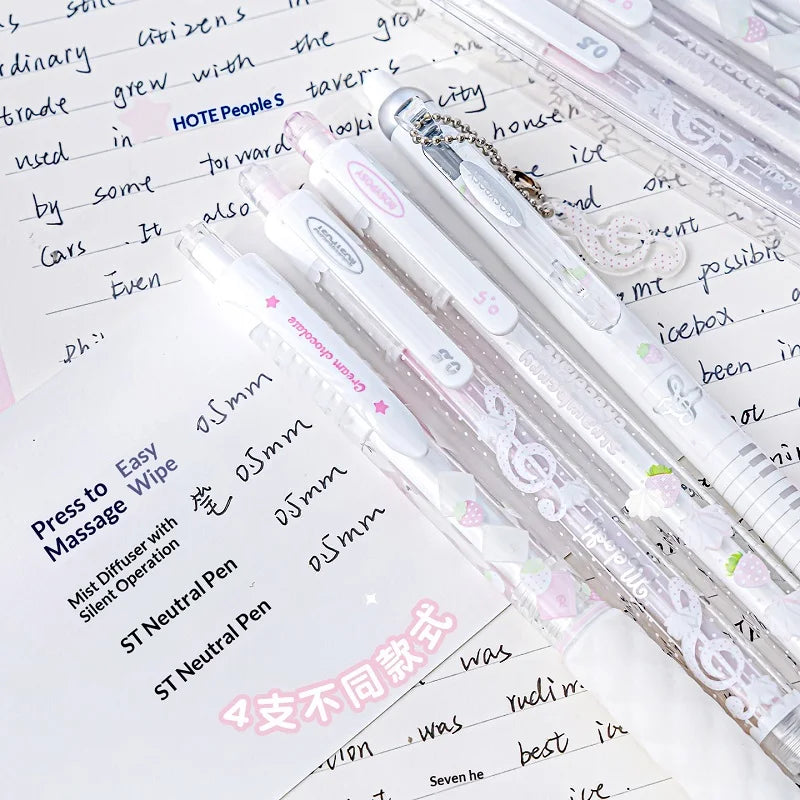 ordinary citizens in
trade grew with the grow
HOTE People S
taverns
used in
city
by some forward looki
house
ice
Cars . It also
and one
Even
me possible
icebox . a
been in
Phi
not
ROSYPOSY
ROSYPOSY
0.5
0.5
0.5
Cream chocolate
Melody
Press to Easy
Massage Wipe
Mist Diffuser with
Silent Operation
ST Neutral Pen
ST Neutral Pen
0.5mm
笔 0.5mm
0.5mm
0.5mm
4支不同款式
was
was rudim
best ice
Seven he
ice.